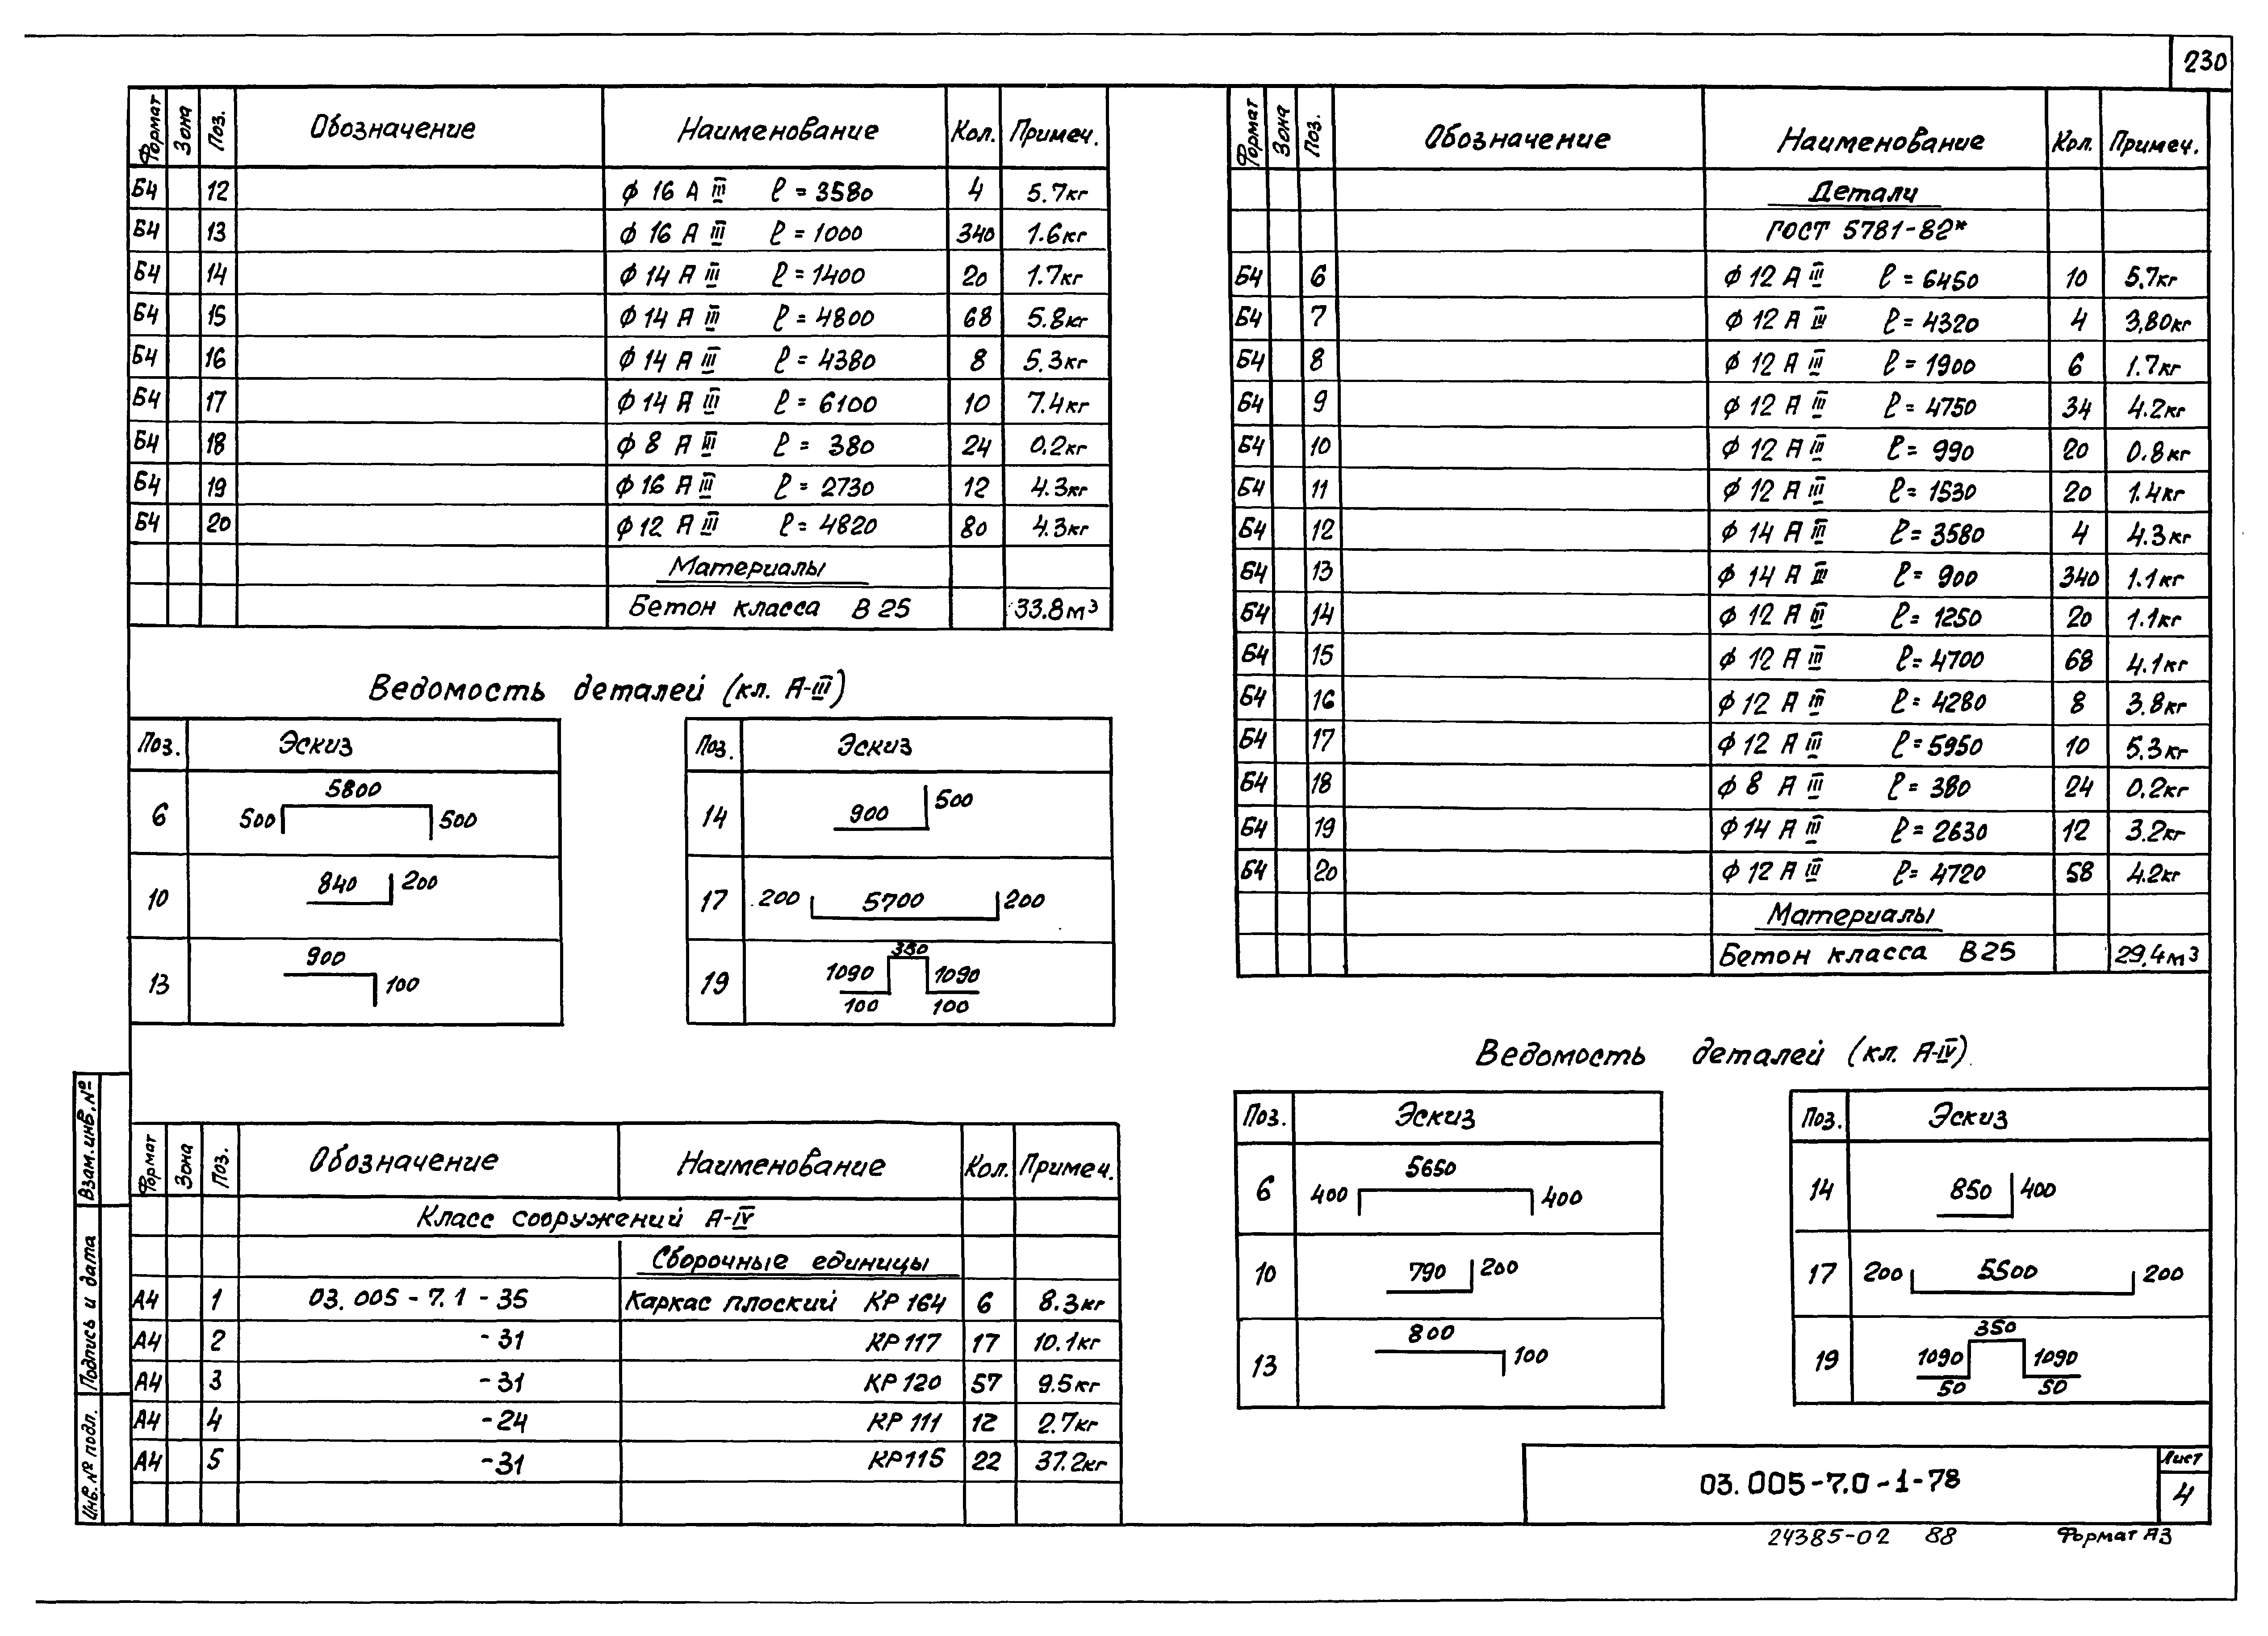 230
Формат Зона Поз. Обозначение Наименование Кол. Примеч.
Б4 12 ф 16 А III ℓ = 3580 4 5.7кг
Б4 13 ф 16 А III ℓ = 1000 340 1.6кг
Б4 14 ф 14 А III ℓ = 1400 20 1.7кг
Б4 15 ф 14 А III ℓ = 4800 68 5.8кг
Б4 16 ф 14 А III ℓ = 4380 8 5.3кг
Б4 17 ф 14 А III ℓ = 6100 10 7.4кг
Б4 18 ф 8 А III ℓ = 380 24 0.2кг
Б4 19 ф 16 А III ℓ = 2730 12 4.3кг
Б4 20 ф 12 А III ℓ = 4820 80 4.3кг
Материалы
Бетон класса В 25 33.8м³
Ведомость деталей (кл. А-III)
Поз. Эскиз
6 500 5800 500
10 840 200
13 900 100
Поз. Эскиз
14 900 500
17 200 5700 200
19 1090 350 1090 100 100
Формат Зона Поз. Обозначение Наименование Кол. Примеч.
Класс сооружений А-IV
Сборочные единицы
А4 1 03.005-7.1-35 Каркас плоский КР 164 6 8.3кг
А4 2 -31 КР 117 17 10.1кг
А4 3 -31 КР 120 57 9.5кг
А4 4 -24 КР 111 12 2.7кг
А4 5 -31 КР115 22 37.2кг
Взам.инв.№
Подпись и дата
Инв.№ подл.
Формат Зона Поз. Обозначение Наименование Кол. Примеч.
Детали
ГОСТ 5781-82*
Б4 6 ф 12 А III ℓ = 6450 10 5.7кг
Б4 7 ф 12 А III ℓ = 4320 4 3.80кг
Б4 8 ф 12 А III ℓ = 1900 6 1.7кг
Б4 9 ф 12 А III ℓ = 4750 34 4.2кг
Б4 10 ф 12 А III ℓ = 990 20 0.8кг
Б4 11 ф 12 А III ℓ = 1530 20 1.4кг
Б4 12 ф 14 А III ℓ = 3580 4 4.3кг
Б4 13 ф 14 А III ℓ = 900 340 1.1кг
Б4 14 ф 12 А III ℓ = 1250 20 1.1кг
Б4 15 ф 12 А III ℓ = 4700 68 4.1кг
Б4 16 ф 12 А III ℓ = 4280 8 3.8кг
Б4 17 ф 12 А III ℓ = 5950 10 5.3кг
Б4 18 ф 8 А III ℓ = 380 24 0.2кг
Б4 19 ф 14 А III ℓ = 2630 12 3.2кг
Б4 20 ф 12 А III ℓ = 4720 58 4.2кг
Материалы
Бетон класса В25 29.4м³
Ведомость деталей (кл. А-IV)
Поз. Эскиз
6 400 5650 400
10 790 200
13 800 100
Поз. Эскиз
14 850 400
17 200 5500 200
19 1090 350 1090 50 50
03.005-7.0-1-78
Лист
4
24385-02 88 Формат А3